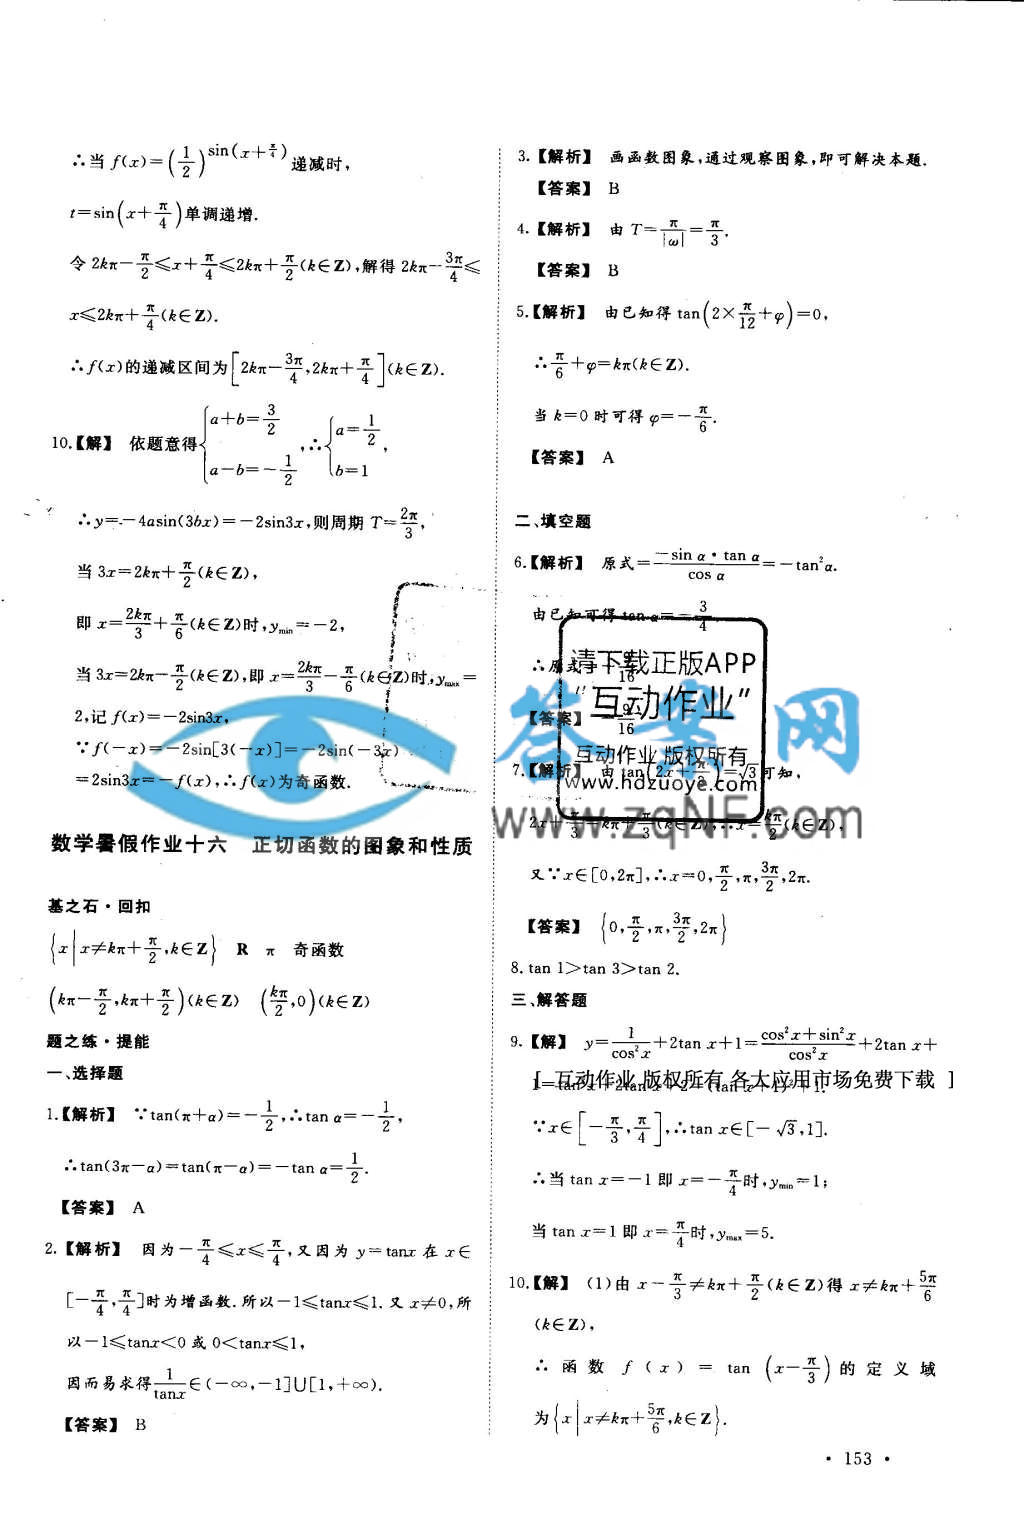 ∴当 f(x)=(1/2)^sin(x+π/4) 递减时,
t=sin(x+π/4)单调递增.
令 2kπ-π/2≤x+π/4≤2kπ+π/2(k∈Z),解得 2kπ-3π/4≤
x≤2kπ+π/4(k∈Z).
∴f(x)的递减区间为[2kπ-3π/4,2kπ+π/4](k∈Z).
10.【解】 依题意得{a+b=3/2, a-b=-1/2,∴{a=1/2, b=1,
∴y=-4asin(3bx)=-2sin3x,则周期 T=2π/3,
当 3x=2kπ+π/2(k∈Z),
即 x=2kπ/3+π/6(k∈Z)时,ymin=-2,
当 3x=2kπ-π/2(k∈Z),即 x=2kπ/3-π/6(k∈Z)时,ymax=
2,记 f(x)=-2sin3x,
∵f(-x)=-2sin[3(-x)]=-2sin(-3x)
=2sin3x=-f(x),∴f(x)为奇函数.
数学暑假作业十六 正切函数的图象和性质
基之石·回扣
{x|x≠kπ+π/2,k∈Z} R π 奇函数
(kπ-π/2,kπ+π/2)(k∈Z) (kπ/2,0)(k∈Z)
题之练·提能
一、选择题
1.【解析】 ∵tan(π+α)=-1/2,∴tan α=-1/2,
∴tan(3π-α)=tan(π-α)=-tan α=1/2.
【答案】 A
2.【解析】 因为-π/4≤x≤π/4,又因为 y=tanx 在 x∈
[-π/4,π/4]时为增函数.所以-1≤tanx≤1.又 x≠0,所
以-1≤tanx<0 或 0<tanx≤1,
因而易求得1/tanx∈(-∞,-1]∪[1,+∞).
【答案】 B
3.【解析】 画函数图象,通过观察图象,即可解决本题.
【答案】 B
4.【解析】 由 T=π/|ω|=π/3.
【答案】 B
5.【解析】 由已知得 tan(2×π/12+φ)=0,
∴π/6+φ=kπ(k∈Z).
当 k=0 时可得 φ=-π/6.
【答案】 A
二、填空题
6.【解析】 原式=-sin α·tan α/cos α=-tan²α.
由已知可得 tan α=-3/4
∴原式=-9/16
【答案】 -9/16
请下载正版APP
"互动作业"
互动作业 版权所有
www.hdzuoye.com
答案网
www.zqNF.com
7.【解析】 由 tan(2x+π/3)=√3可知,
2x+π/3=kπ+π/3(k∈Z),∴x=kπ/2(k∈Z),
又∵x∈[0,2π],∴x=0,π/2,π,3π/2,2π.
【答案】 {0,π/2,π,3π/2,2π}
8. tan 1>tan 3>tan 2.
三、解答题
9.【解】 y=1/cos²x+2tan x+1=(cos²x+sin²x)/cos²x+2tan x+
1=tan²x+2tan x+2=(tan x+1)²+1.
[ 互动作业 版权所有 各大应用市场免费下载 ]
∵x∈[-π/3,π/4],∴tan x∈[-√3,1].
∴当 tan x=-1 即 x=-π/4时,ymin=1;
当 tan x=1 即 x=π/4时,ymax=5.
10.【解】 (1)由 x-π/3≠kπ+π/2(k∈Z)得 x≠kπ+5π/6
(k∈Z),
∴ 函数 f(x)=tan(x-π/3)的定义域
为{x|x≠kπ+5π/6,k∈Z}.
· 153 ·